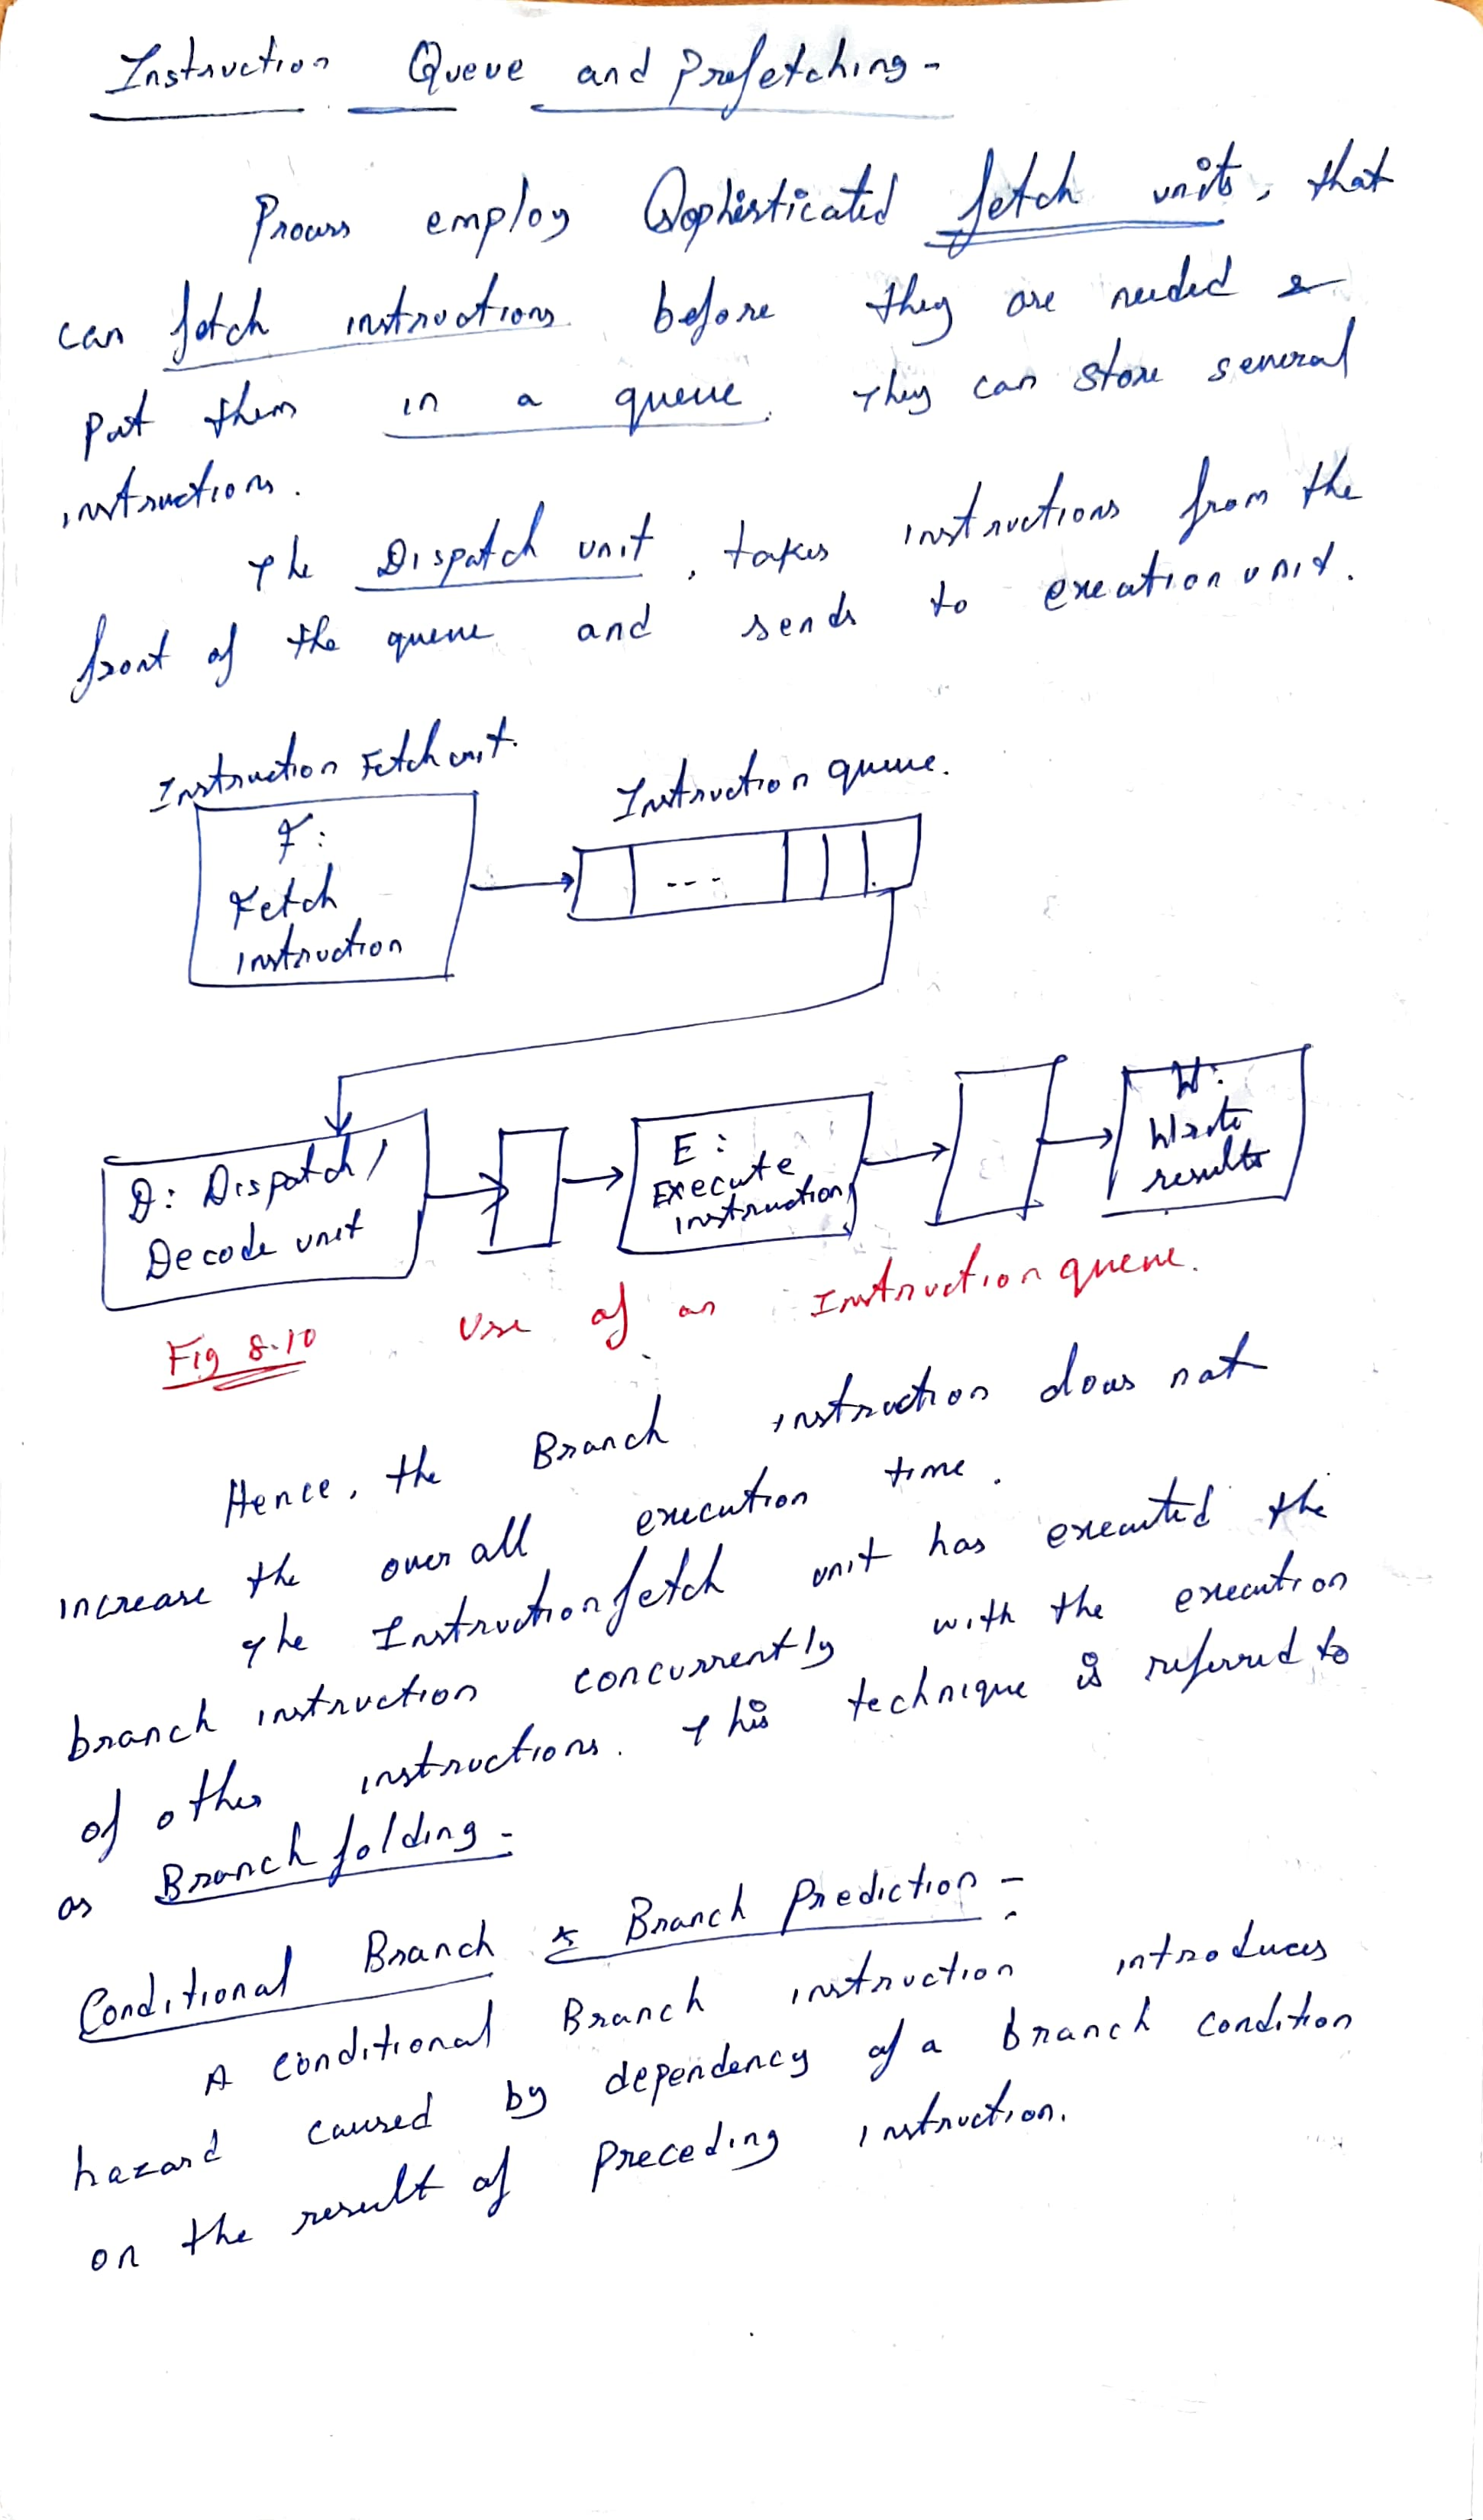 Instruction Queue and Prefetching -
Procurs employ Sophisticated fetch units, that
can fetch instructions before they are needed &
put them in a queue. They can store several
instructions.
The Dispatch unit, takes instructions from the
front of the queue and sends to execution unit.
Instruction Fetch unit.
Instruction queue.
F:
Fetch
instruction
---
D: Dispatch/
Decode unit
E:
Execute
instruction
W:
Write
results
Fig 8.10 Use of an Instruction queue.
Hence, the Branch instruction does not
increase the over all execution time.
The Instruction fetch unit has executed the
branch instruction concurrently with the execution
of other instructions. This technique is referred to
as Branch folding -
Conditional Branch & Branch Prediction -
A conditional Branch instruction introduces
hazard caused by dependency of a branch condition
on the result of preceding instruction.